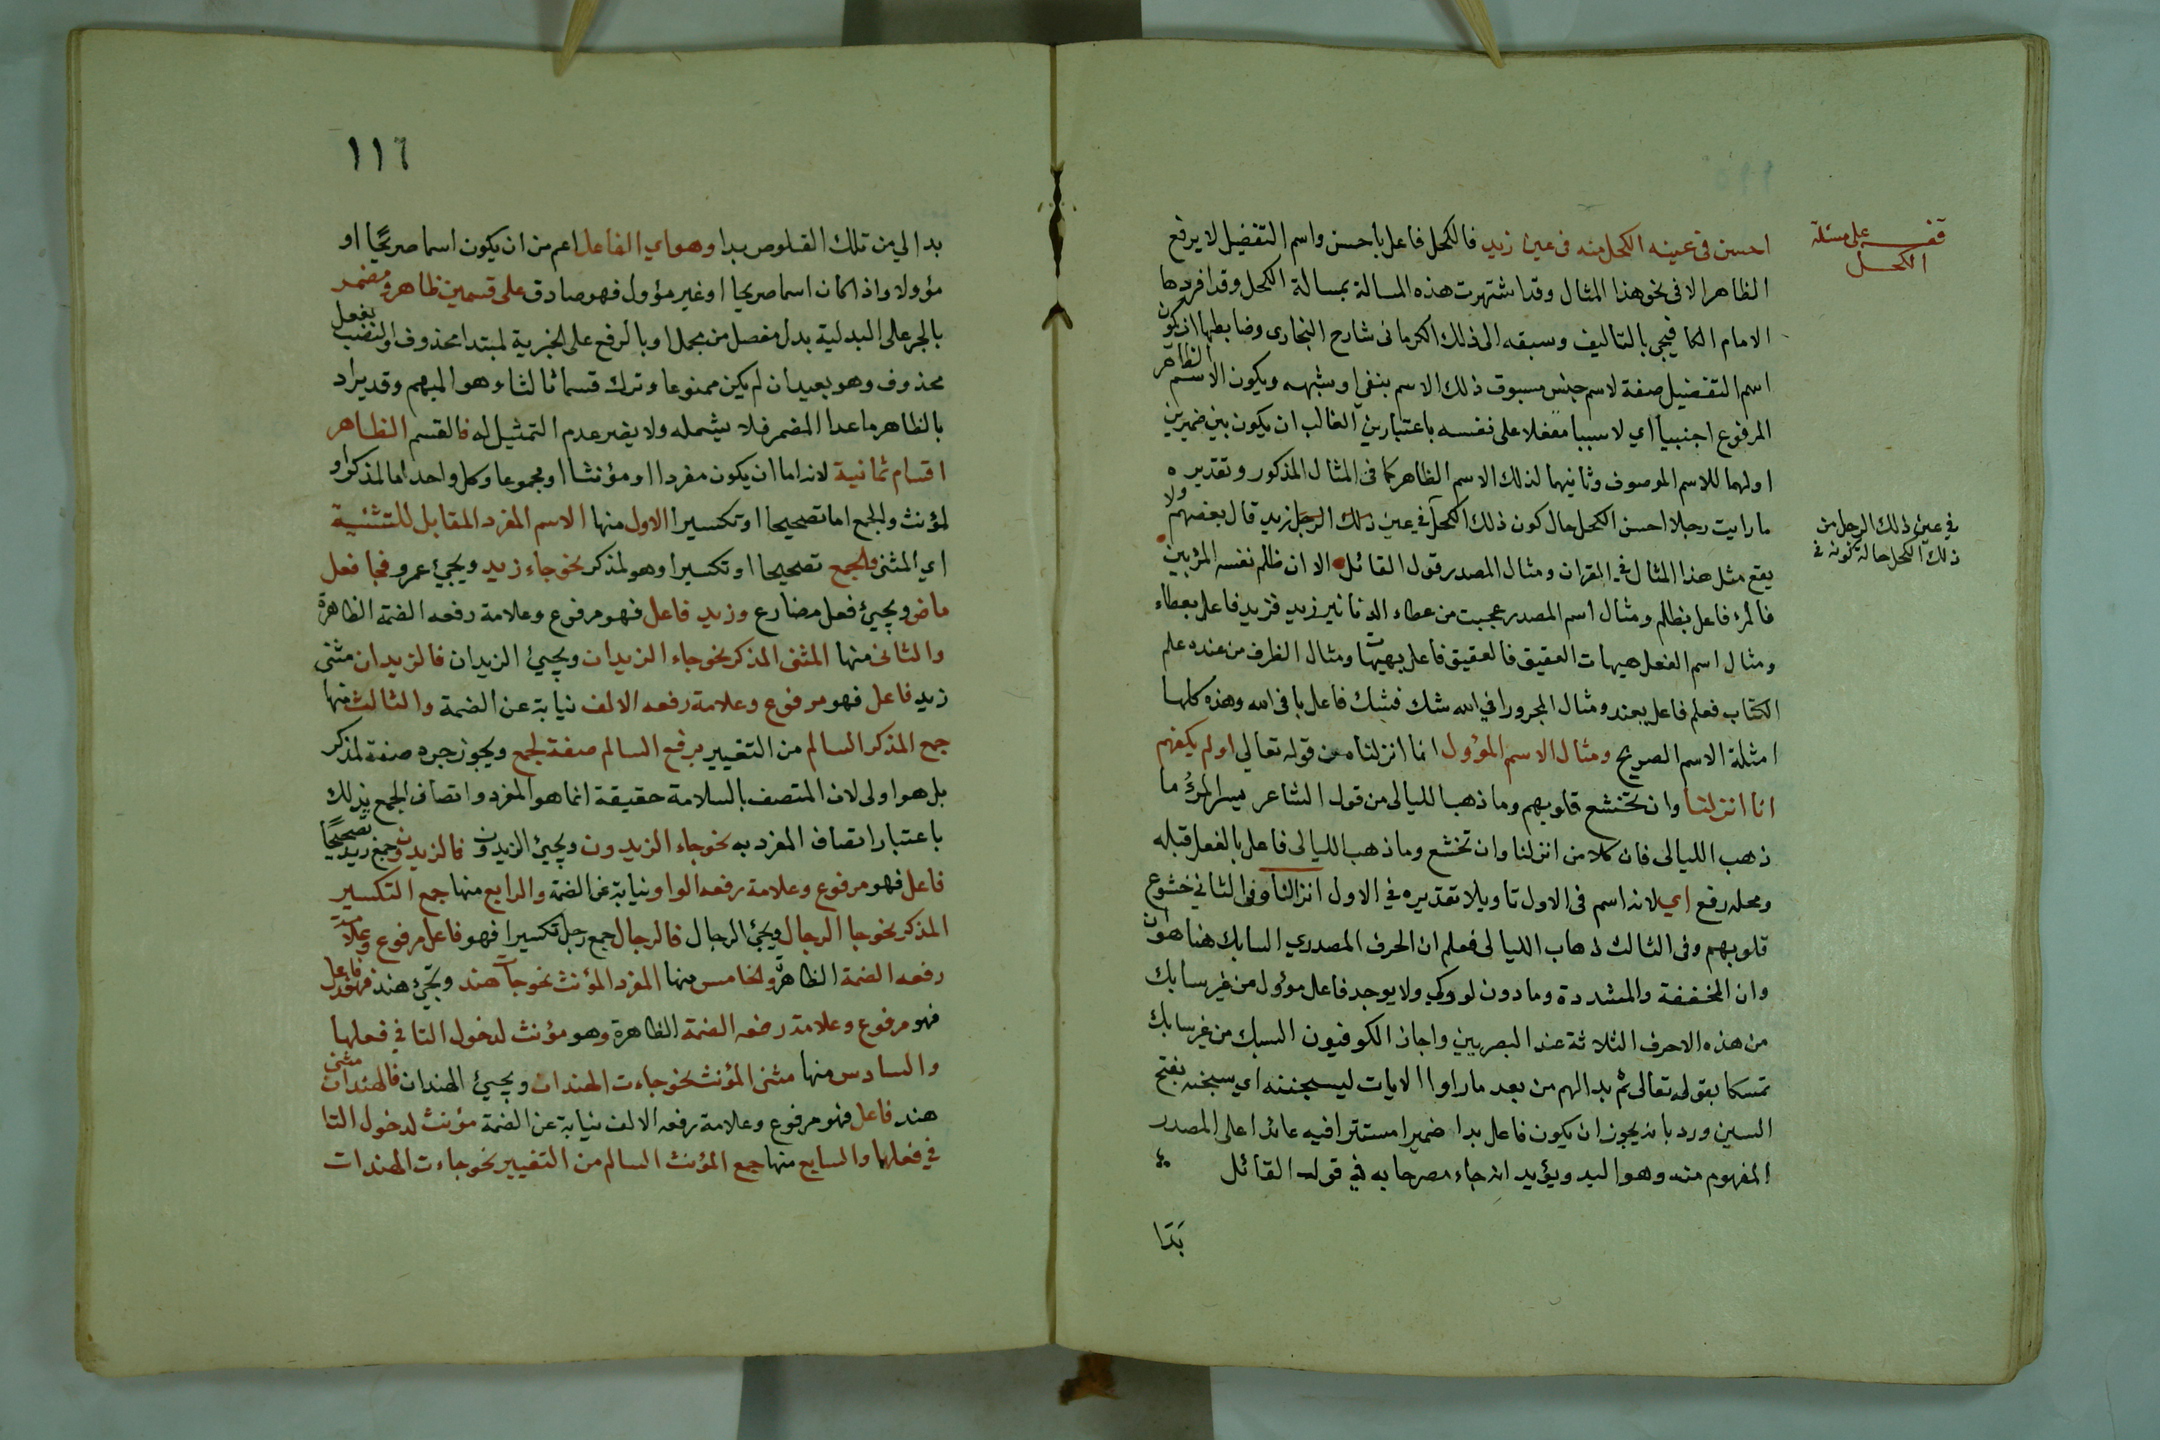 احسن في عينه الكحل منه في عين زيد فالكحل فاعل بأحسن واسم التفضيل لا يرفع
الظاهر الا في نحو هذا المثال وقد اشتهرت هذه المسالة بمسالة الكحل وقد افردها
الامام الكافيجي بالتاليف وسبقه الى ذلك الكرماني شارح البخارى وضابطها ان يكون
اسم التفضيل صفة لاسم جنس مسبوق ذلك الاسم بنفي او شبهه ويكون الاسم الظاهر
المرفوع اجنبيا اي لا سببيا مفضلا على نفسه باعتبارين الغالب ان يكون بين ضميرين
اولهما للاسم الموصوف وثانيهما لذلك الاسم الظاهر كما في المثال المذكور وتقديره
ما رايت رجلا احسن الكحل حال كون ذلك الكحل في عين ذلك الرجل زيد قال بعضهم ولا
يقع مثل هذا المثال في القران ومثال المصدر قول القائل الا ان ظلم نفسه المرء بين
فالمرء فاعل بظلم ومثال اسم المصدر عجبت من عطاء الدنانير زيد فزيد فاعل بعطاء
ومثال اسم الفعل هيهات العقيق فالعقيق فاعل بهيهات ومثال الظرف من عنده علم
الكتاب فعلم فاعل بعند ومثال المجرور افي الله شك فشك فاعل بافى الله وهذه كلها
امثلة الاسم الصريح ومثال الاسم المؤول انا انزلناه من قوله تعالى اولم يكفهم
انا انزلنا وان تخشع قلوبهم وما ذهب الليالى من قول الشاعر يسر المرءُ ما
ذهب الليالى فان كلا من انزلنا وان تخشع وما ذهب الليالى فاعل بالفعل قبله
ومحله رفع اي لانه اسم فى الاول تاويلا تقديره في الاول انزالنا وفي الثاني خشوع
قلوبهم وفى الثالث ذهاب الليالى فعلم ان الحرف المصدري السابك هنا هو ان
وان المخففة والمشددة وما دون لو وكي ولا يوجد فاعل مؤول من غير سابك
من هذه الاحرف الثلاثة عند البصريين واجاز الكوفيون السبك من غير سابك
تمسكا بقوله تعالى ثم بدا لهم من بعد ما راوا الايات ليسجننه اي سجنه بفتح
السين ورد بانه يجوز ان يكون فاعل بدا ضميرا مستترا فيه عائدا على المصدر
المفهوم منه وهو البد ويؤيد انه جاء مصرحا به في قوله القائل
بَدَا
قف على مسئلة
الكحل
في عين ذلك الرجل من
ذلك الكحل حالة كونه في
١١٦
بدا لي من تلك القلوص بدا وهو اي الفاعل اعم من ان يكون اسما صريحًا او
مؤولا واذا كان اسما صريحا او غير مؤول فهو صادق على قسمين ظاهر ومضمر
بالجر على البدلية بدل مفصل من مجمل او بالرفع على الخبرية لمبتدا محذوف او النصب بفعل
محذوف وهو بعيد ان لم يكن ممنوعا وترك قسما ثالثا وهو المبهم وقد يراد
بالظاهر ما عدا المضمر فلا يشمله ولا يضر عدم التمثيل له فالقسم الظاهر
اقسام ثمانية لانه اما ان يكون مفردا او مؤنثا او مجموعا وكل واحد اما لمذكر او
لمؤنث والجمع اما تصحيحا او تكسيرا الاول منها الاسم المفرد المقابل للتثنية
اي المثنى والجمع تصحيحا او تكسيرا وهو لمذكر نحو جاء زيد ويجيئ عمرو فجا فعل
ماض ويجيئ فعل مضارع وزيد فاعل فهو مرفوع وعلامة رفعه الضمة الظاهرة
والثانى منها المثنى المذكر نحو جاء الزيدان ويجيئ الزيدان فالزيدان مثنى
زيد فاعل فهو مرفوع وعلامة رفعه الالف نيابة عن الضمة والثالث منها
جمع المذكر السالم من التغيير برفع السالم صفة لجمع ويجوز جره صفة لمذكر
بل هو اولى لان المتصف بالسلامة حقيقة انما هو المفرد واتصاف الجمع بذلك
باعتبار اتصاف المفرد به نحو جاء الزيدون ويجيئ الزيدون فالزيدون جمع زيد تصحيحًا
فاعل فهو مرفوع وعلامة رفعه الواو نيابة عن الضمة والرابع منها جمع التكسير
المذكر نحو جا الرجال ويجئ الرجال فالرجال جمع رجل تكسيرا فهو فاعل مرفوع وعلامة
رفعه الضمة الظاهرة والخامس منها المفرد المؤنث نحو جات هند وتجئ هند فهند فاعل
فهو مرفوع وعلامة رفعه الضمة الظاهرة وهو مؤنث لدخول التا في فعلها
والسادس منها مثنى المؤنث نحو جاءت الهندان ويجيئ الهندان فالهندان مثنى
هند فاعل فهو مرفوع وعلامة رفعه الالف نيابة عن الضمة مؤنث لدخول التا
في فعلها والسابع منها جمع المؤنث السالم من التغيير نحو جاءت الهندات